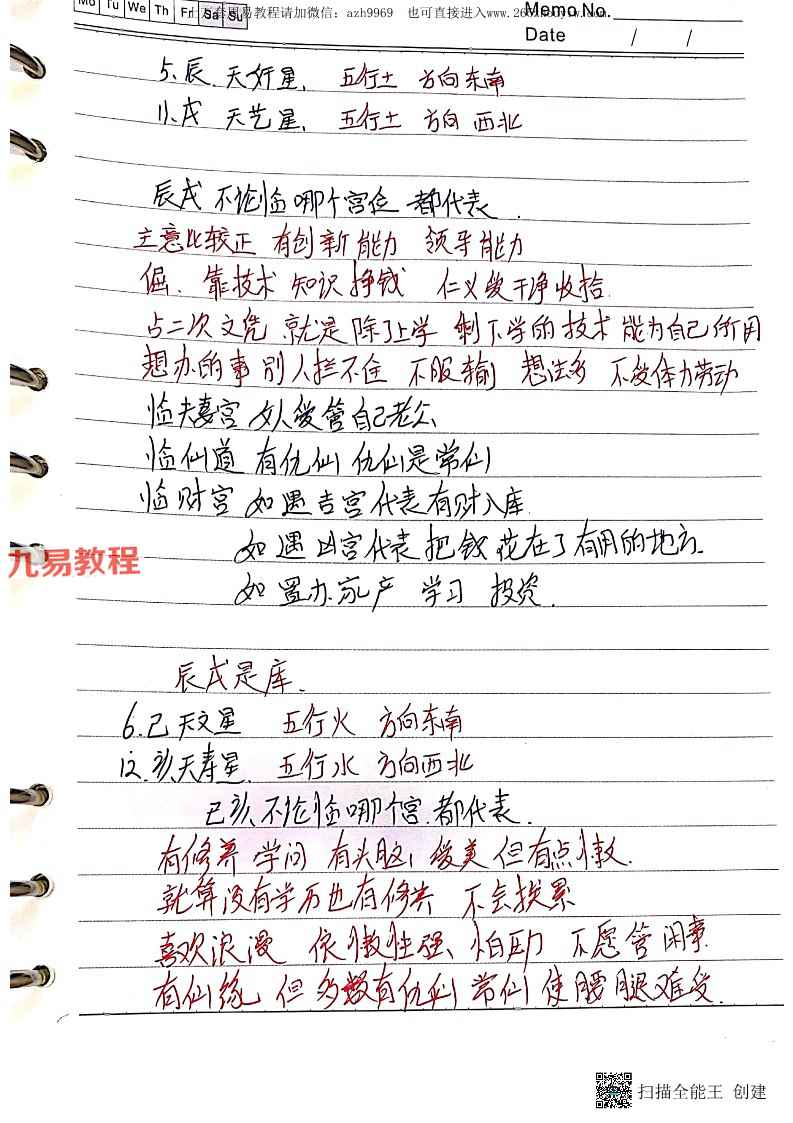 Mo Tu We Th Fri Sa Su
易教程请加微信：azh9969 也可直接进入www.26
Memo No.
Date / /
5.辰 天奸星. 五行土 方向东南
11.戌 天艺星. 五行土 方向 西北
辰戌 不论临哪个宫位 都代表.
主意比较正 有创新能力 领导能力
倔. 靠技术 知识 挣钱 仁义爱干净收拾
占二次文凭 就是除了上学 剩下学的技术 能为自己所用
想办的事 别人拦不住 不服输 想法多 不爱体力劳动
临夫妻宫 女人爱管自己老公
临仙道 有仇仙 仇仙是常仙
临财宫 如遇吉宫代表有财入库.
如遇凶宫代表把钱花在了有用的地方.
九易教程
如置办家产 学习 投资.
辰戌是库.
6.巳 天文星 五行火 方向东南
12.亥天寿星. 五行水 方向西北
巳亥不论临哪个宫.都代表.
有修养 学问 有头脑 爱美 但有点懒.
就算没有学历也有修养 不会挨累
喜欢浪漫 依懒性强、怕 不愿管闲事.
有仙缘 但多数有仇仙 常仙 使腰腿难受.
扫描全能王 创建